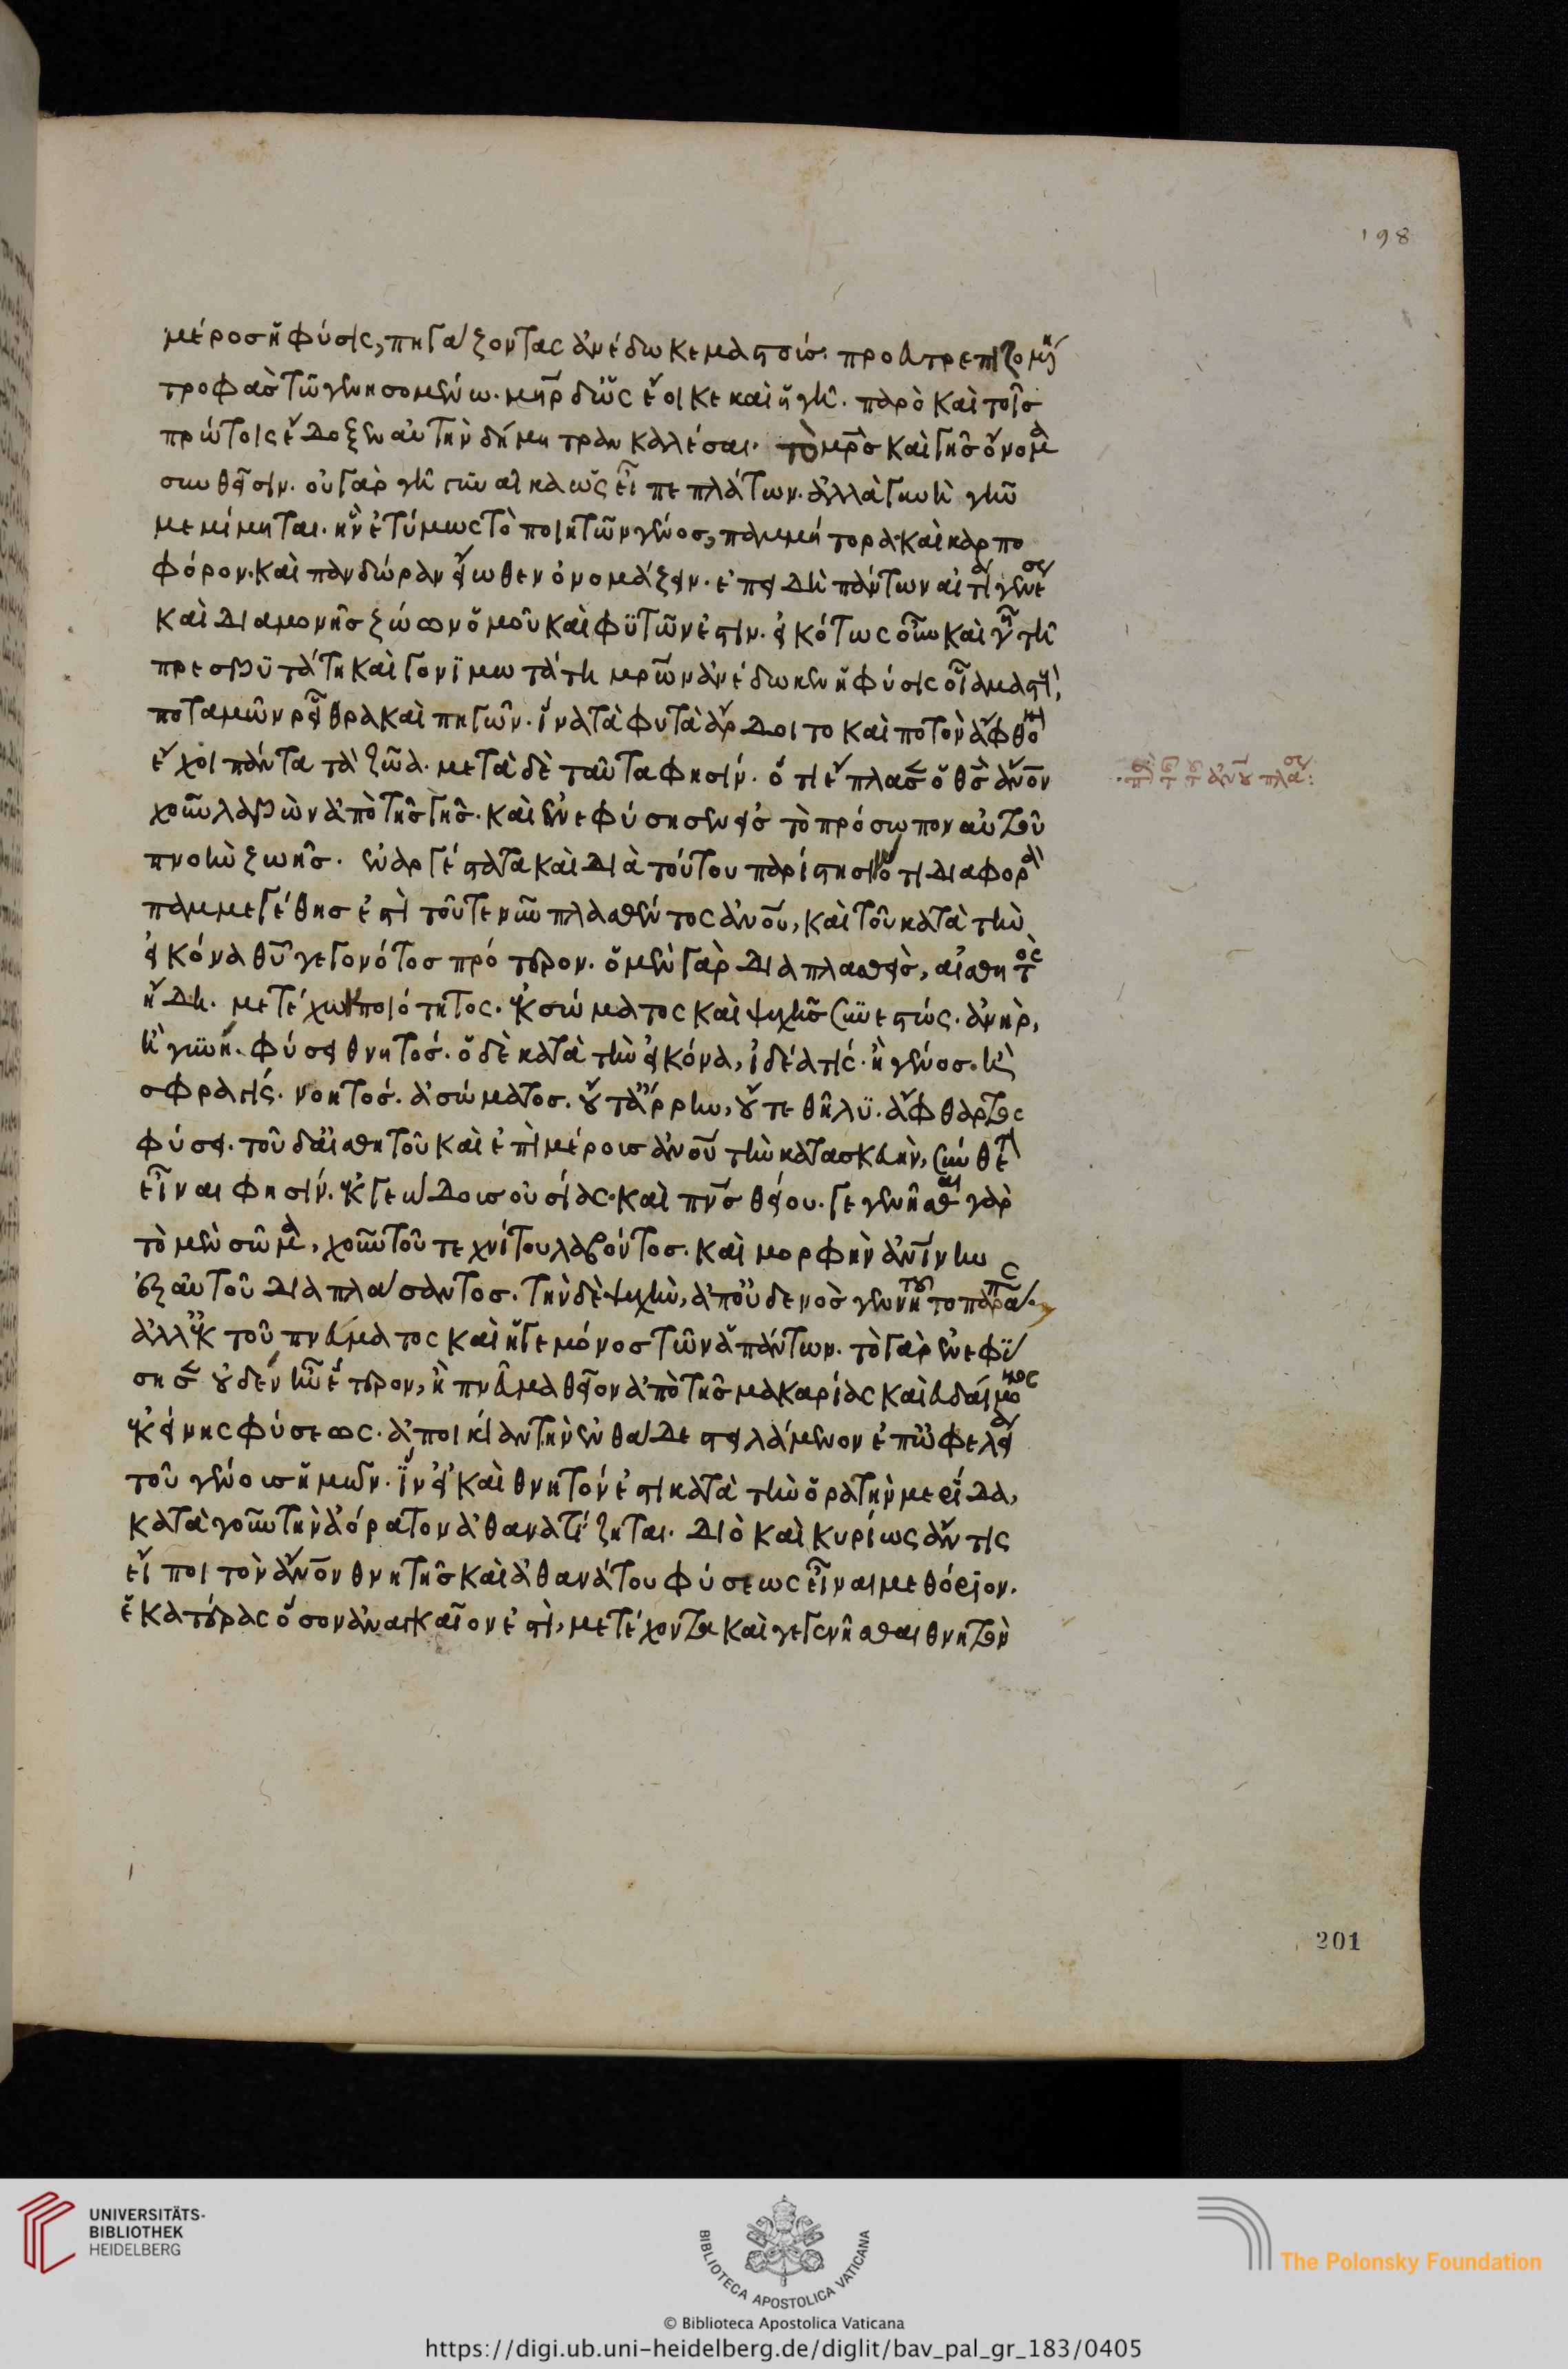 μέρος ἡ φύσις, πηγάζοντας ἀνέδωκε μαστούς. προευτρεπιζομένη
τροφὰς τῷ γεννησομένῳ. μηρ δ' ὡς ἔοικε καὶ ἡ γῆ. παρὸ καὶ τοῖς
πρώτοις ἔδοξεν αὐτὴν δήμητραν καλέσαι. τὸ μρς καὶ γῆς ὄνομα
συνθεῖσιν. οὐ γὰρ γῆ γυναῖκα ὡς εἶπε πλάτων. ἀλλὰ γυνὴ γῆν
μεμίμηται. ἣν ἐτύμως τὸ ποιητῶν γένος, παμμήτορα καὶ καρπο
φόρον. καὶ πανδώραν εἴωθεν ὀνομάζειν. ἐπειδὴ πάντων αἰτία γενέσεως
καὶ διαμονῆς ζώων ὁμοῦ καὶ φυτῶν ἐστιν. εἰκότως οὖν καὶ γῇ τῇ
πρεσβυτάτη καὶ γονιμωτάτη μρων ἀνέδωκεν ἡ φύσις οἷα μαστοὺς,
ποταμῶν ῥεῖθρα καὶ πηγῶν. ἵνα τὰ φυτὰ ἄρδοιτο καὶ ποτὸν ἄφθονον
ἔχοι πάντα τὰ ζῶα. μετὰ δὲ ταῦτα φησίν. ὅτι ἔπλασεν ὁ θς ἄνον
χοῦν λαβὼν ἀπὸ τῆς γῆς. καὶ ἐνεφύσησεν εἰς τὸ πρόσωπον αὐτοῦ
πνοὴν ζωῆς. ἐναργέστατα καὶ διὰ τούτου παρίστησιν ὅτι διαφορὰ
παμμεγέθης ἐστὶ τοῦτε νῦν πλασθέντος ἀνου, καὶ τοῦ κατὰ τὴν
εἰκόνα θυ γεγονότος πρότερον. ὁ μὲν γὰρ διαπλασθεὶς, αἰσθητὸς
ἤδη. μετέχων ποιότητος. ἐκ σώματος καὶ ψυχῆς συνεστώς. ἀνὴρ,
ἢ γυνή. φύσει θνητός. ὁ δὲ κατὰ τὴν εἰκόνα, ἰδέα τίς. ἢ γένος. ἢ
σφραγίς. νοητός. ἀσώματος. οὔτ' ἄρρην, οὔτε θῆλυ. ἄφθαρτος
φύσει. τοῦ δ' αἰσθητοῦ καὶ ἐπὶ μέρους ἀνου τὴν κατασκευὴν, σύνθετον
εἶναι φησίν. ἐκ γεώδους οὐσίας. καὶ πνς θείου. γεγενῆσθαι γὰρ
τὸ μὲν σῶμα, χοῦν τοῦ τεχνίτου λαβόντος. καὶ μορφὴν ἀνίνην
ἐξ αὐτοῦ διαπλάσαντος. τὴν δὲ ψυχὴν, ἀπ' οὐδενὸς γεννητοῦ τὸ παράπαν
ἀλλ' ἐκ τοῦ πνεύματος καὶ ἡγεμόνος τῶν ἁπάντων. τὸ γὰρ ἐνεφύ
σησεν οὐδὲν ἦν ἕτερον, ἢ πνεῦμα θεῖον ἀπὸ τῆς μακαρίας καὶ εὐδαίμονος
ἐκείνης φύσεως. ἀποικίαν τὴν ἐνθάδε στειλάμενον ἐπ' ὠφελείᾳ
τοῦ γένους ἡμῶν. ἵν' εἰ καὶ θνητόν ἐστι κατὰ τὴν ὁρατὴν μερίδα,
κατὰ γοῦν τὴν ἀόρατον ἀθανατίζηται. διὸ καὶ κυρίως ἄν τις
εἴποι τὸν ἄνον θνητῆς καὶ ἀθανάτου φύσεως εἶναι μεθόριον.
ἑκατέρας ὅσον ἀναγκαῖον ἐστὶ, μετέχοντα καὶ γεγενῆσθαι θνητὸν
περὶ τῆς τοῦ ἀνου πλάσεως:
198
201
UNIVERSITÄTS-
BIBLIOTHEK
HEIDELBERG
BIBLIOTECA APOSTOLICA VATICANA
© Biblioteca Apostolica Vaticana
The Polonsky Foundation
https://digi.ub.uni-heidelberg.de/diglit/bav_pal_gr_183/0405